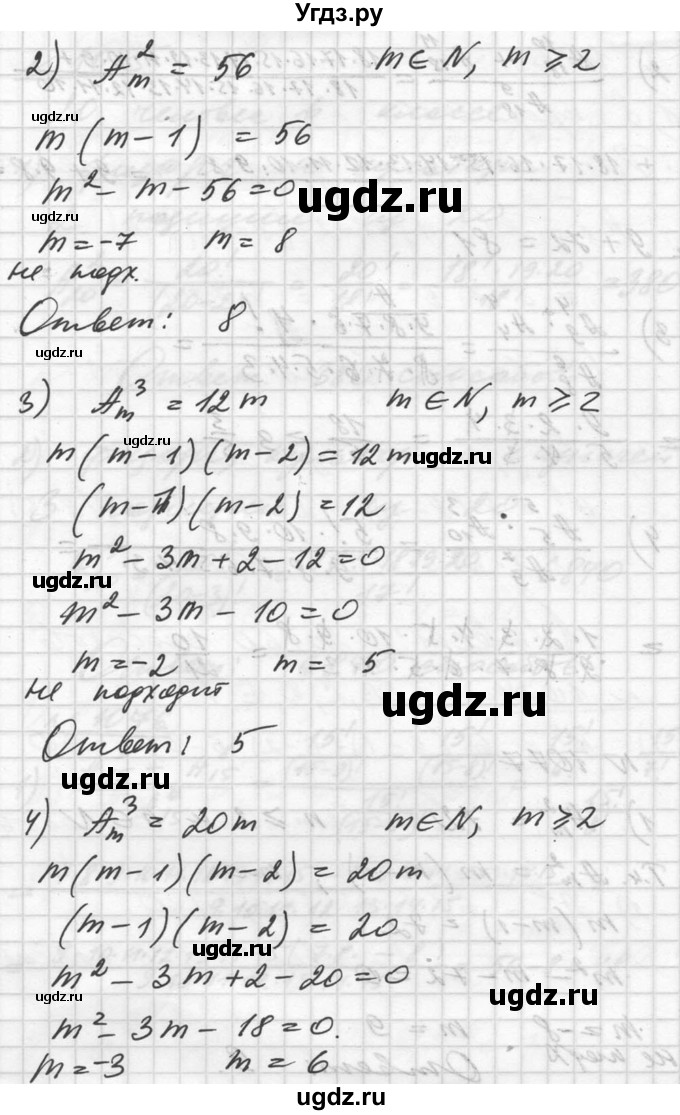 Угдз.ру
2) A²ₘ = 56 m ∈ N, m ⩾ 2
ugdz.ru
m(m-1) = 56
m² - m - 56 = 0
ugdz.ru
ugdz.ru
m = -7 m = 8
не подх.
Ответ: 8
ugdz.ru
3) A³ₘ = 12m m ∈ N, m ⩾ 2
ugdz.ru
m(m-1)(m-2) = 12m
ugdz.ru
(m-1)(m-2) = 12
m² - 3m + 2 - 12 = 0
ugdz.ru
m² - 3m - 10 = 0
m = -2 m = 5
не подходит
ugdz.ru
Ответ: 5
ugdz.ru
4) A³ₘ = 20m m ∈ N, m ⩾ 2
m(m-1)(m-2) = 20m
(m-1)(m-2) = 20
ugdz.ru
m² - 3m + 2 - 20 = 0
ugdz.ru
ugdz.ru
m² - 3m - 18 = 0.
m = -3 m = 6
ugdz.ru